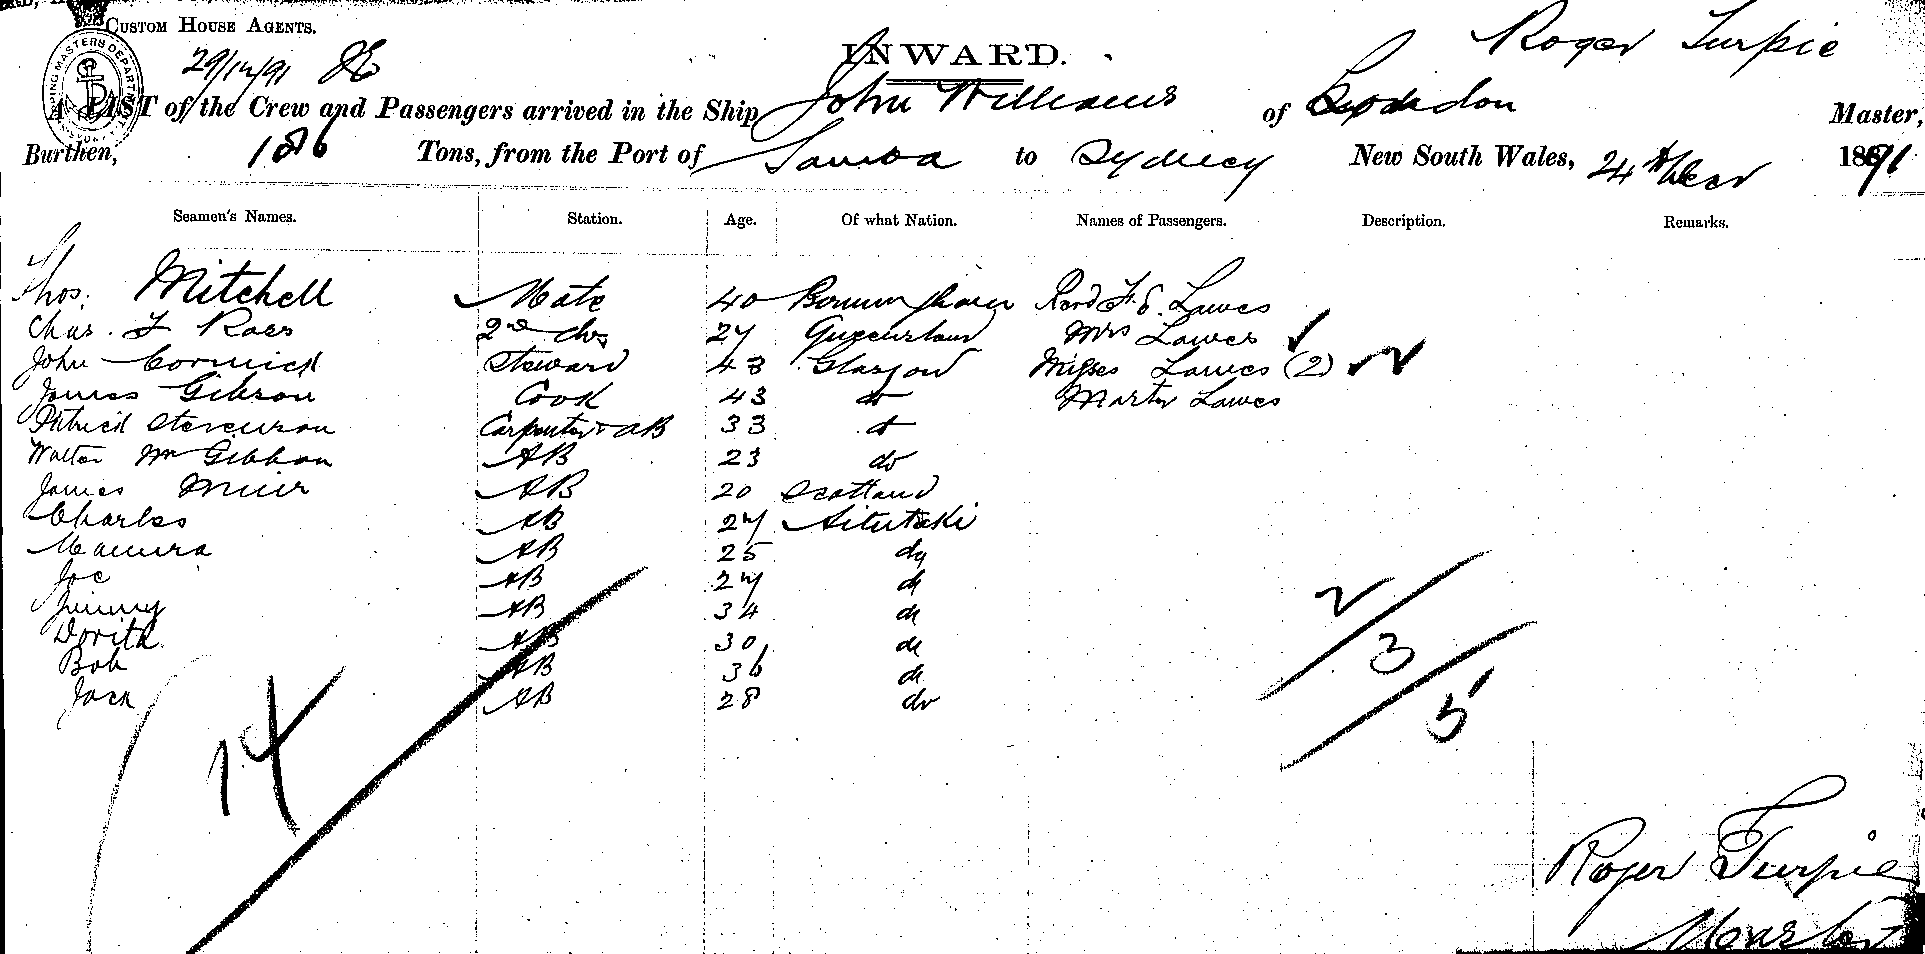 CUSTOM HOUSE AGENTS.
29/12/91
INWARD.
Roger Turpie
A LIST of the Crew and Passengers arrived in the Ship John Williams of London Master,
Burthen, 186 Tons, from the Port of Samoa to Sydney New South Wales, 24th Decr 1891
Seamen's Names. Station. Age. Of what Nation. Names of Passengers. Description. Remarks.
Thos. Mitchell Mate 40 Revd F. E. Lawes
Chas. F Roes 2nd do 27 Queensland Mrs Lawes
John Cormick Steward 43 Glasgow Misses Lawes (2)
James Gibson Cook 43 do Master Lawes
Patrick Stevenson Carpenter & AB 33 do
Walter Mc Gibbon AB 23 do
James Muir AB 20 Scotland
Charles AB 27 Aitutaki
AB 25 do
Joe AB 27 do
Jimmy AB 34 do
AB 30 do
Bob AB 36 do
Jack AB 28 do
2/3/5
14
Roger Turpie
Master